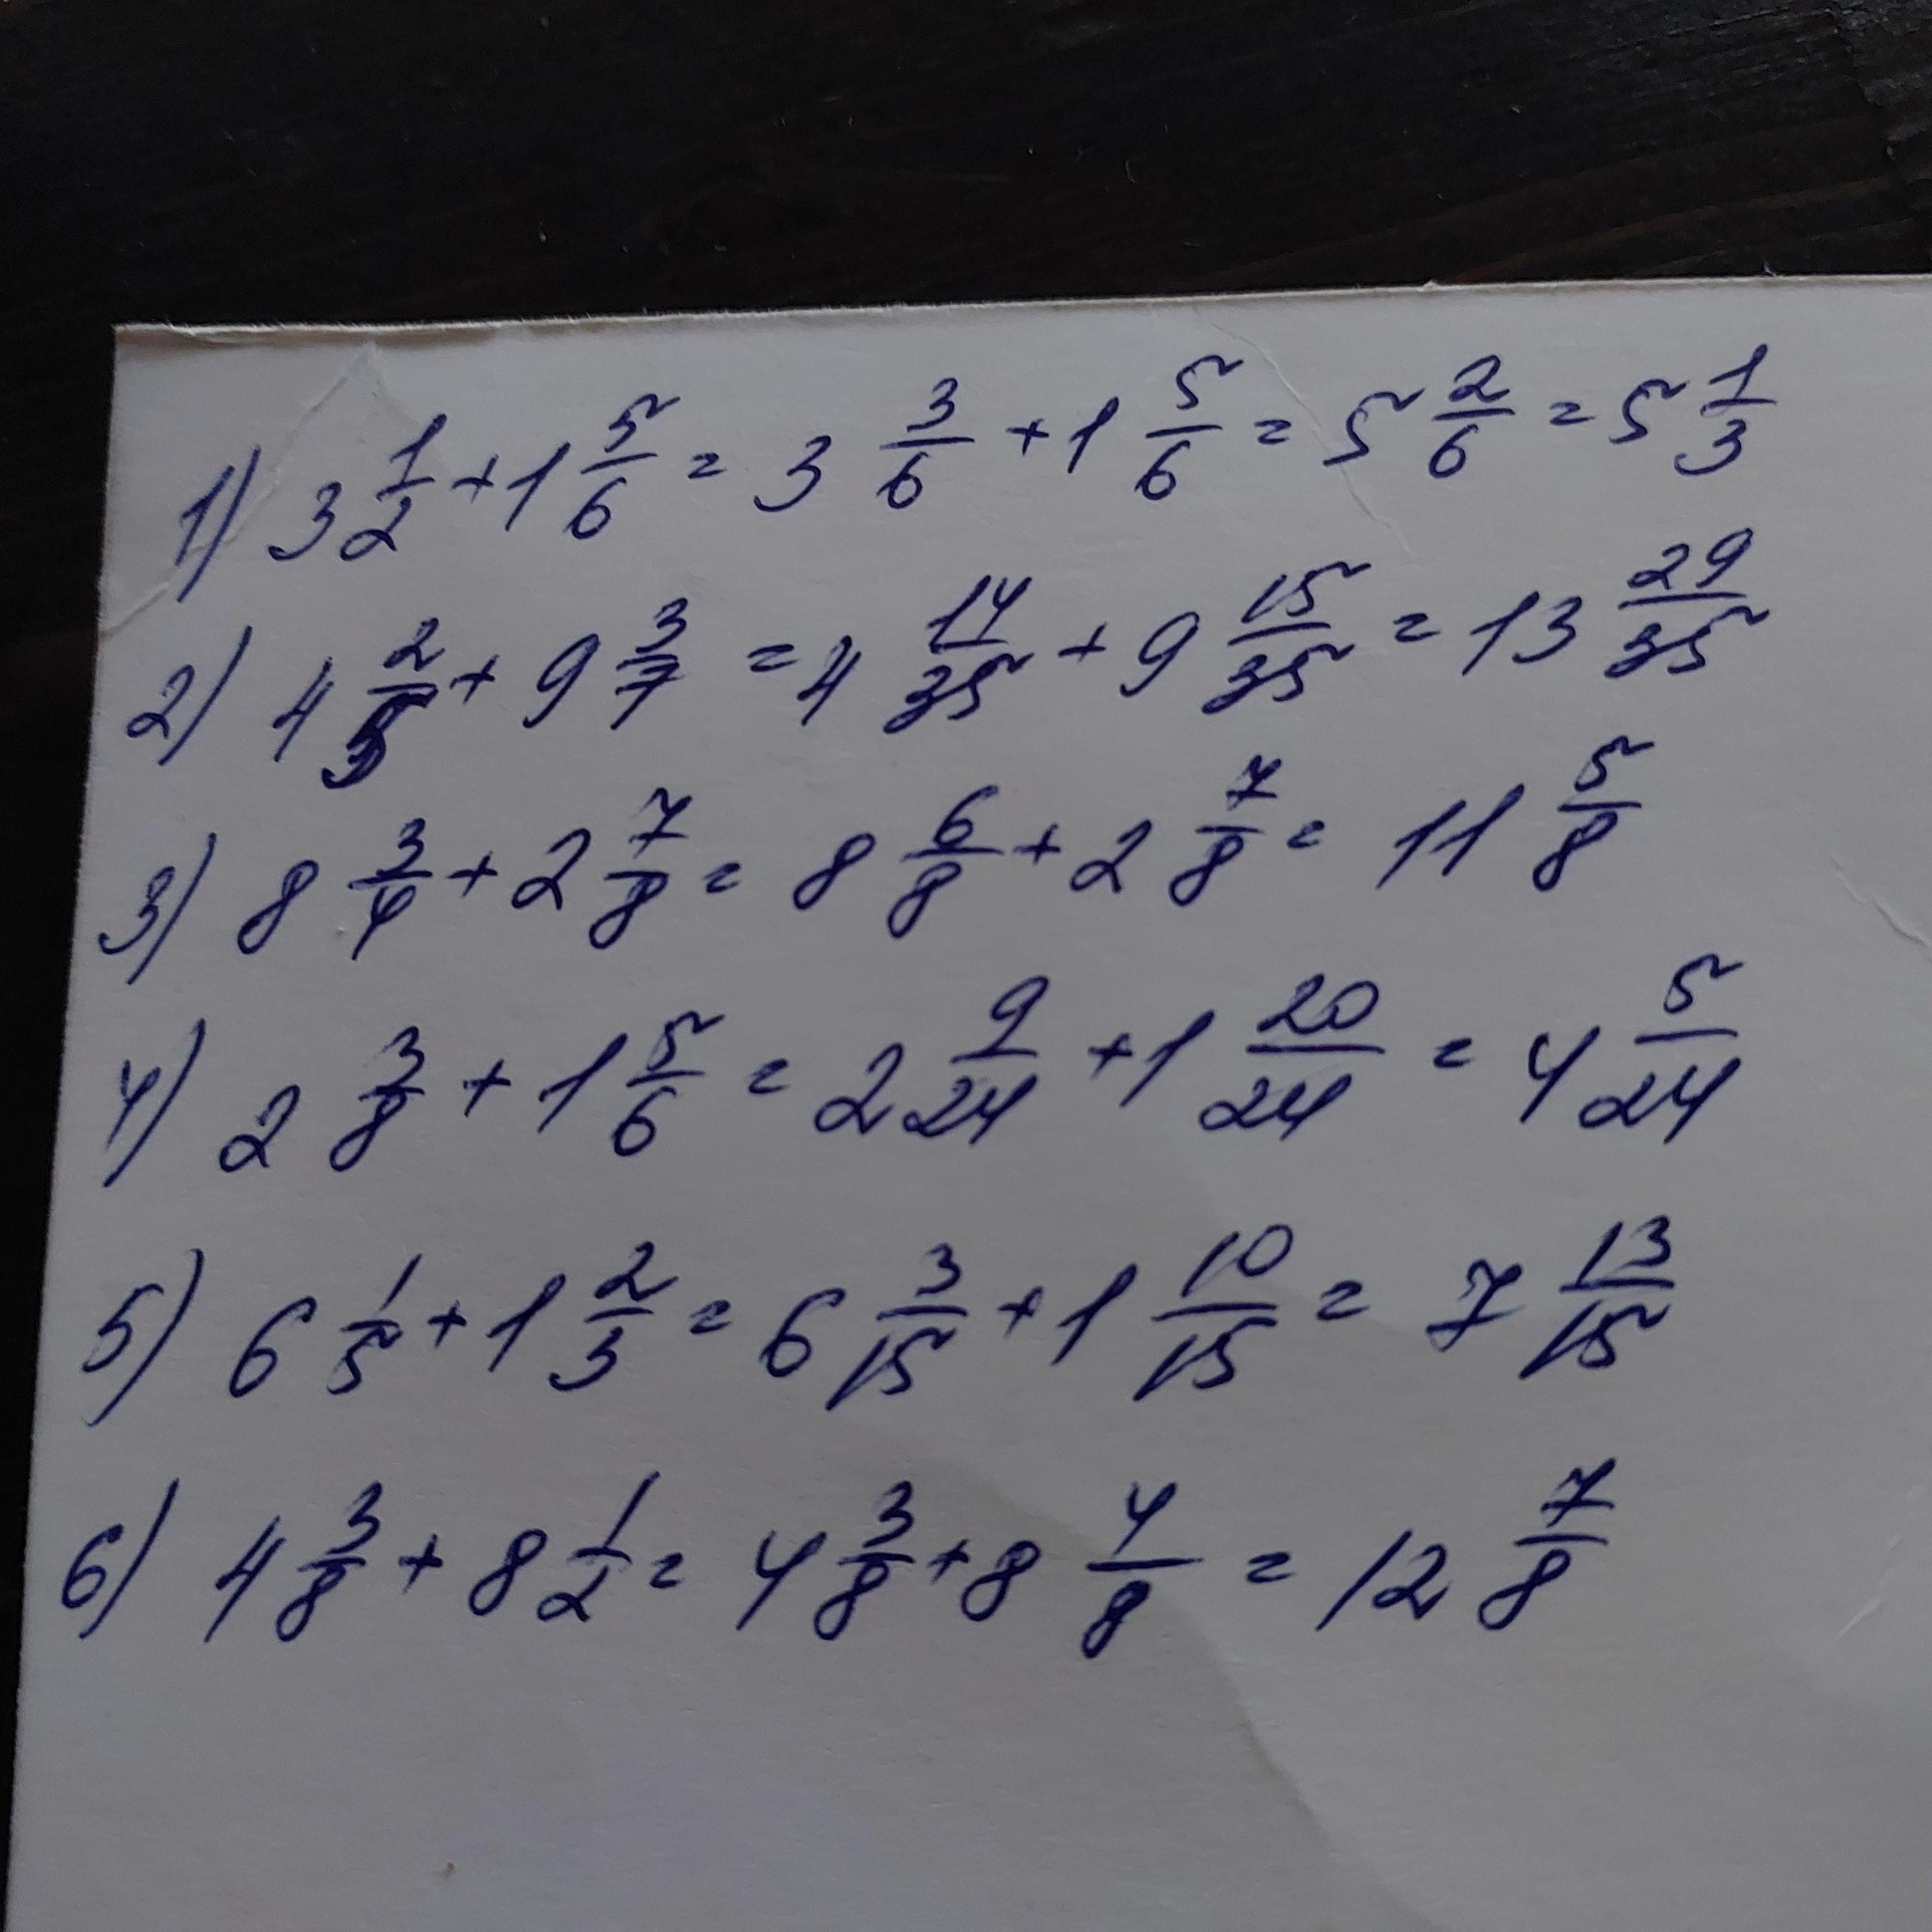 1) 3 1/2 + 1 5/6 = 3 3/6 + 1 5/6 = 5 2/6 = 5 1/3
2) 4 2/5 + 9 3/7 = 4 14/35 + 9 15/35 = 13 29/35
3) 8 3/4 + 2 7/8 = 8 6/8 + 2 7/8 = 11 5/8
4) 2 3/8 + 1 5/6 = 2 9/24 + 1 20/24 = 4 5/24
5) 6 1/5 + 1 2/3 = 6 3/15 + 1 10/15 = 7 13/15
6) 4 3/8 + 8 1/2 = 4 3/8 + 8 4/8 = 12 7/8